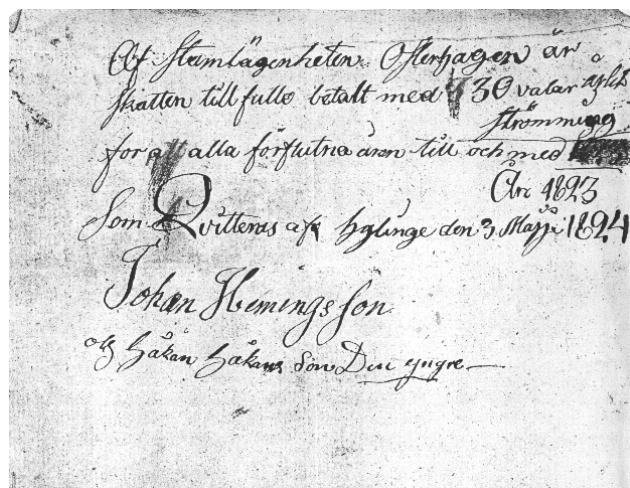 Af stamlägenheten Österhagen är
skatten till fullo betalt med 30 valar årlit
Strömming
för att alla förflutna åren till och med
År 1823
Som Qvitteras af hylinge den 3 Maji 1824
Johan Hemingsson
och håkan håkans Son Den yngre